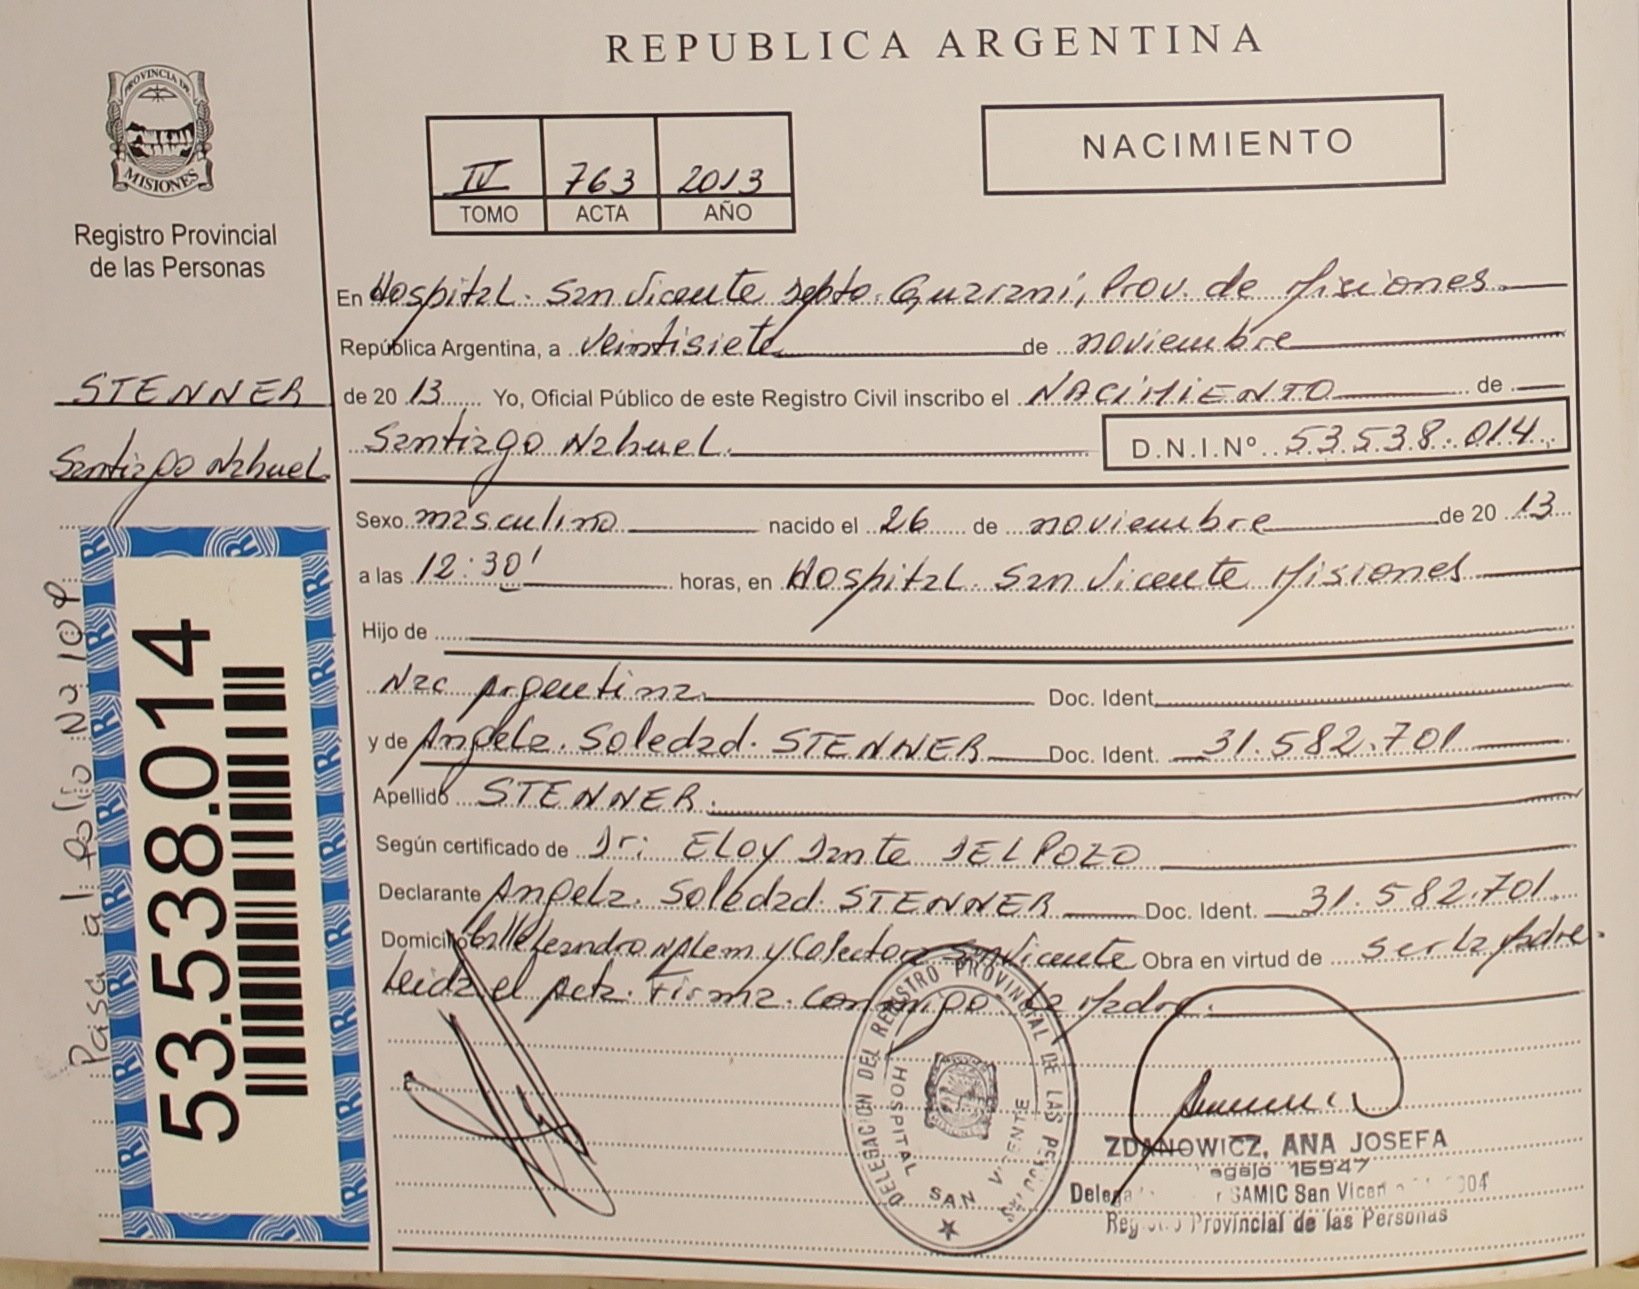 REPUBLICA ARGENTINA
PROVINCIA DE
MISIONES
Registro Provincial
de las Personas
IV 763 2013
TOMO ACTA AÑO
NACIMIENTO
En Hospital. San Vicente Depto. Guaraní, Prov. de Misiones
República Argentina, a veintisiete de noviembre
STENNER
Santiago Nahuel
de 20 13 Yo, Oficial Público de este Registro Civil inscribo el NACIMIENTO de
Santiago Nahuel. D.N.I.Nº 53.538.014
Sexo masculino nacido el 26 de noviembre de 20 13
a las 12:30' horas, en Hospital San Vicente Misiones
Hijo de
Nac Argentina Doc. Ident.
y de Angela. Soledad. STENNER Doc. Ident. 31.582.701
Apellido STENNER.
Según certificado de Dr: ELOY Dante DEL POZO
Declarante Angela. Soledad STENNER Doc. Ident. 31.582.701
Domicilio Calle Leandro N Alem y Colectora San Vicente Obra en virtud de ser la Madre.
Leida el Acta. Firma. Conmigo. La Madre.
53.538.014
Pasa al folio Nº 109
DELEGACION DEL REGISTRO PROVINCIAL DE LAS PERSONAS
HOSPITAL SAN VICENTE
ZDANOWICZ, ANA JOSEFA
Legajo 15947
SAMIC San Vicen
Registro Provincial de las Personas